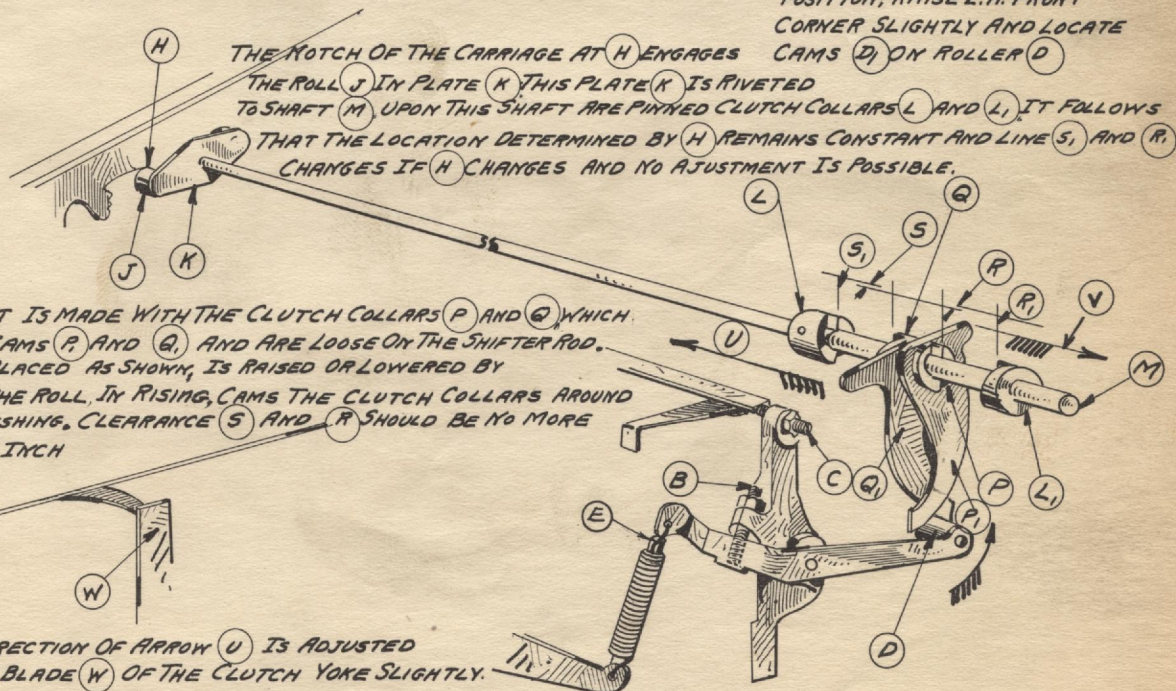 POSITION, RAISE L.H. FRONT
CORNER SLIGHTLY AND LOCATE
CAMS D1 ON ROLLER D
THE NOTCH OF THE CARRIAGE AT H ENGAGES
THE ROLL J IN PLATE K THIS PLATE K IS RIVETED
TO SHAFT M. UPON THIS SHAFT ARE PINNED CLUTCH COLLARS L AND L1. IT FOLLOWS
THAT THE LOCATION DETERMINED BY H REMAINS CONSTANT AND LINE S1 AND R1
CHANGES IF H CHANGES AND NO AJUSTMENT IS POSSIBLE.
H
J
K
L
Q
S1
S
R
R1
V
U
M
T IS MADE WITH THE CLUTCH COLLARS P AND Q, WHICH
AMS P1 AND Q1 AND ARE LOOSE ON THE SHIFTER ROD.
LACED AS SHOWN, IS RAISED OR LOWERED BY
HE ROLL, IN RISING, CAMS THE CLUTCH COLLARS AROUND
SHING. CLEARANCE S AND R SHOULD BE NO MORE
INCH
C
Q1
P
L1
P1
B
E
D
W
RECTION OF ARROW U IS ADJUSTED
BLADE W OF THE CLUTCH YOKE SLIGHTLY.